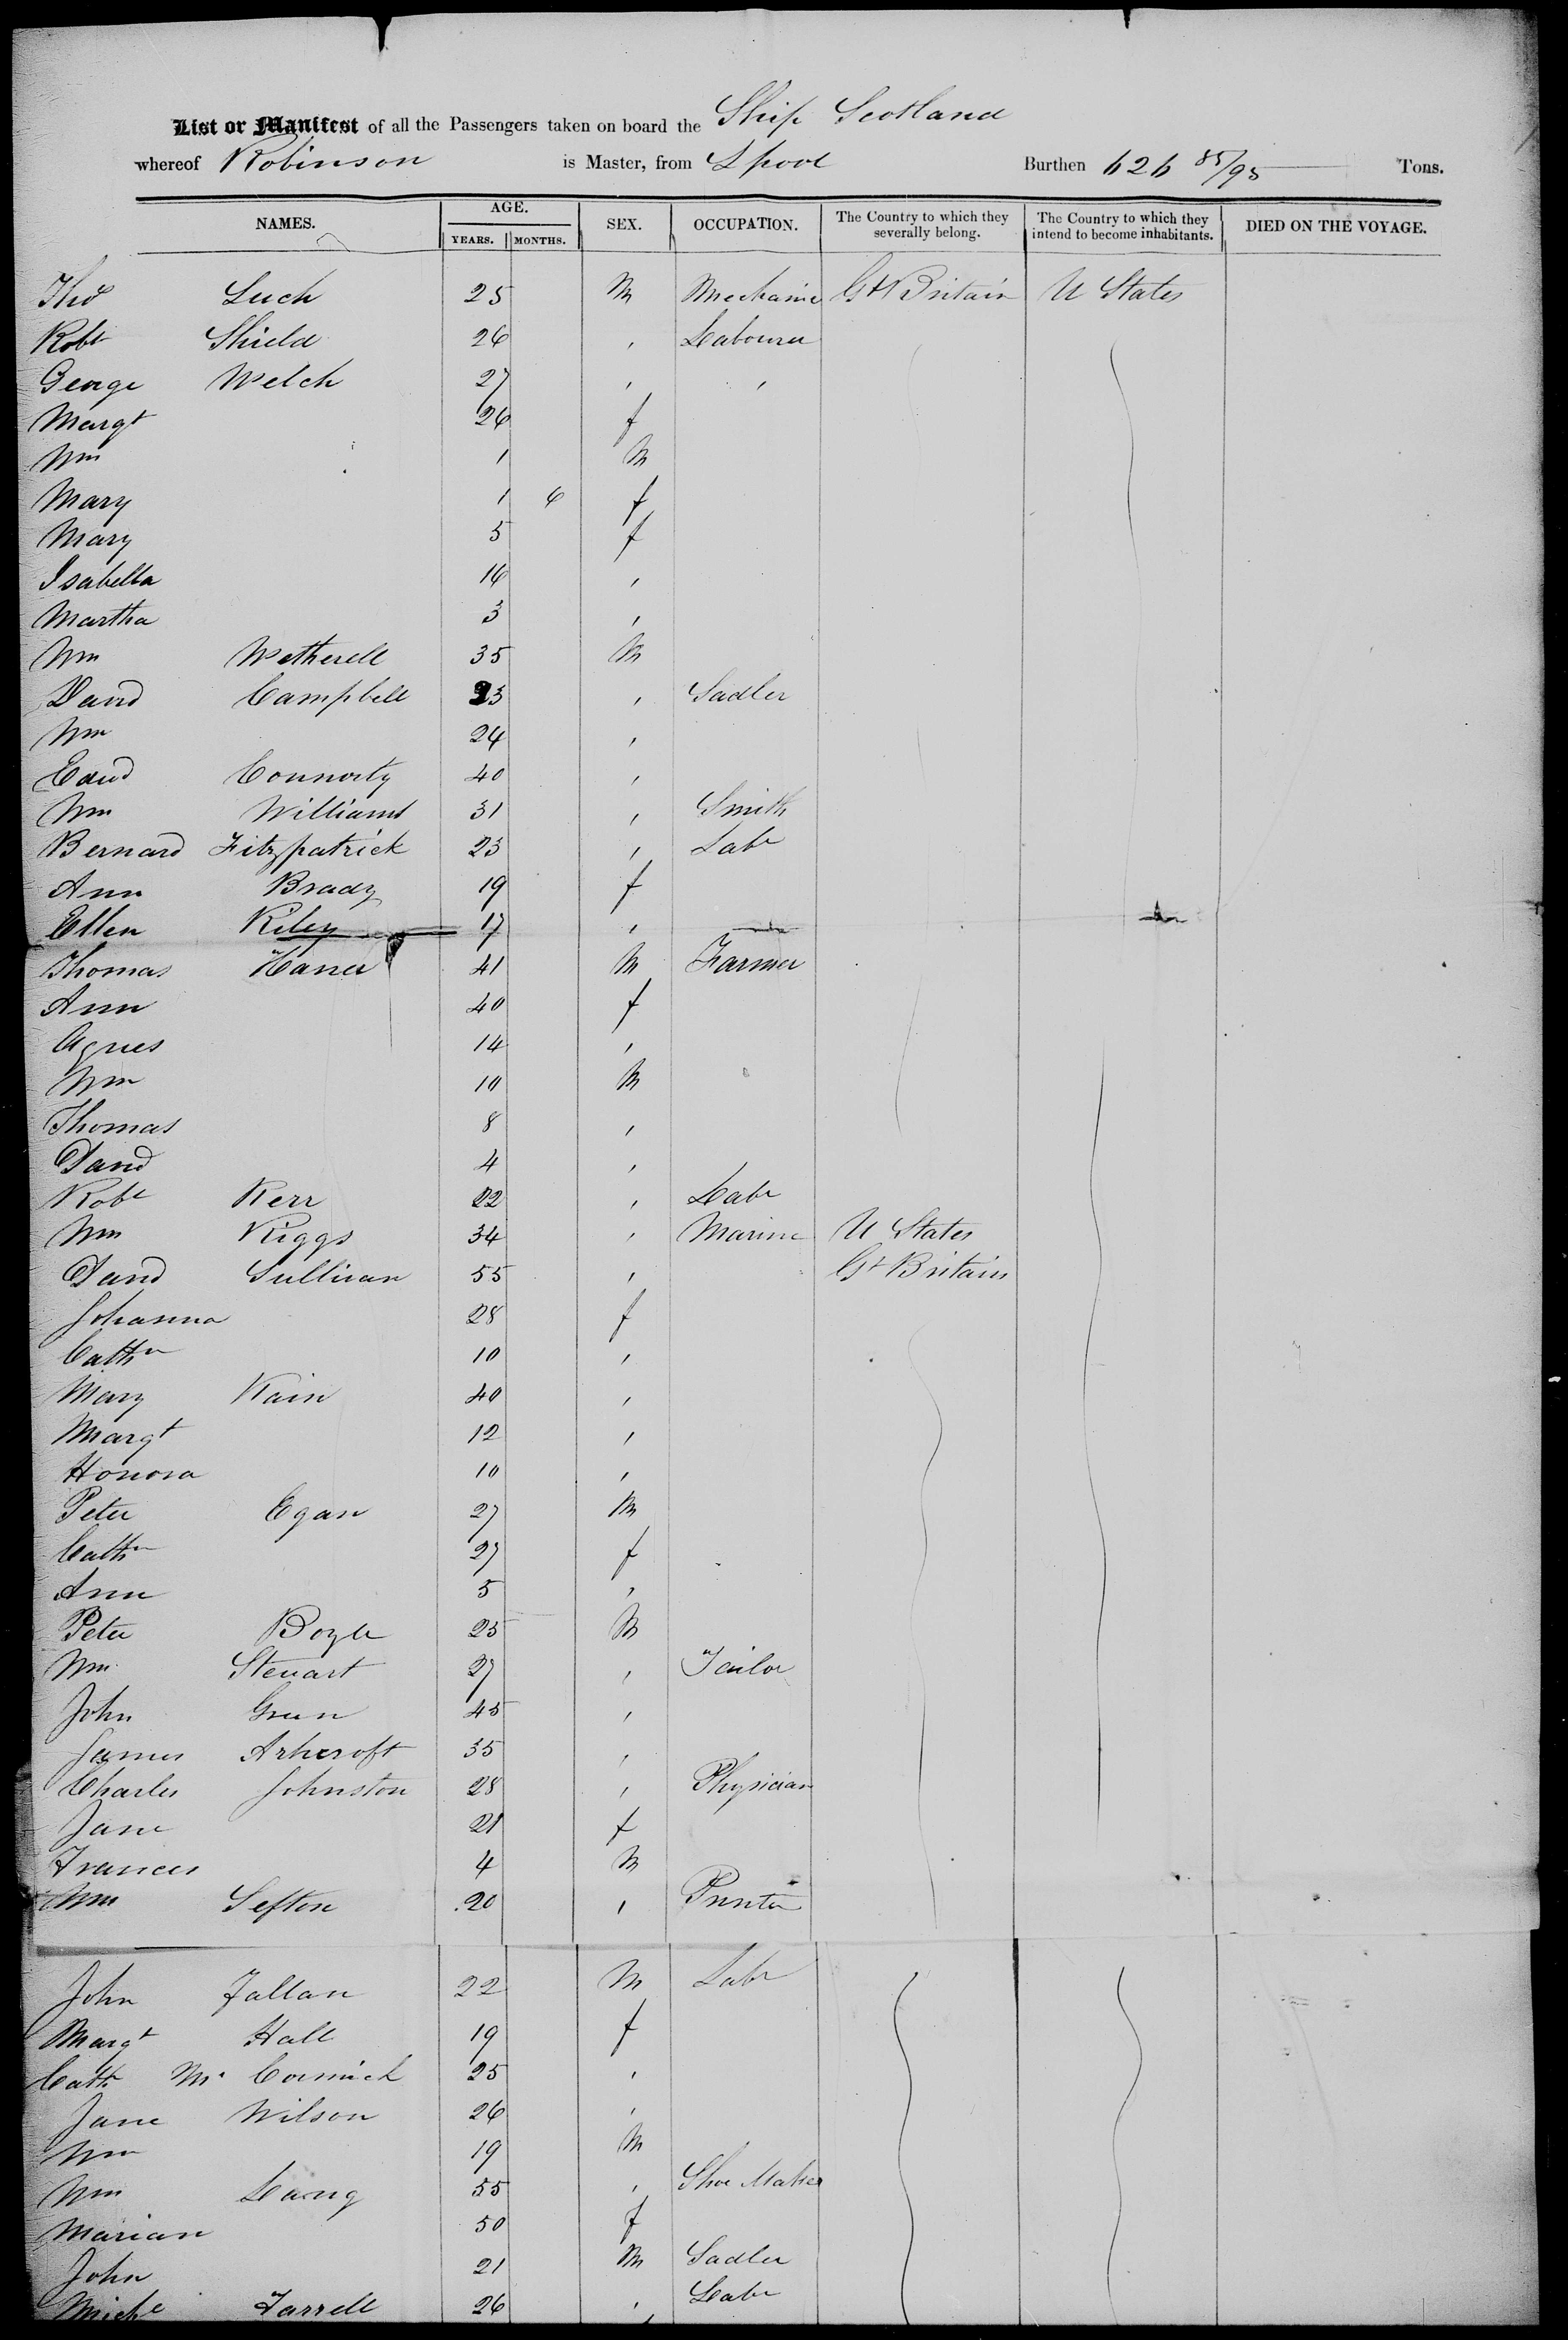 List or Manifest of all the Passengers taken on board the Ship Scotland
whereof Robinson is Master, from Lpool Burthen 626 85/95 Tons.
NAMES. AGE. YEARS. MONTHS. SEX. OCCUPATION. The Country to which they severally belong. The Country to which they intend to become inhabitants. DIED ON THE VOYAGE.
Thos Luch 25 M Mechanic Gt Britain U States
Robt Shield 26 , Labourer
George Welch 27 , ,
Margt 26 f
Wm 1 M
Mary 1 6 f
Mary 5 f
Isabella 16 ,
Martha 3 ,
Wm Wetherell 35 M
David Campbell 23 , Sadler
Wm 24 ,
Edwd Connorty 40 ,
Wm Williams 31 , Smith
Bernard Fitzpatrick 23 , Labr
Ann Brady 19 f
Ellen Riley 17 ,
Thomas Hana 41 M Farmer
Ann 40 f
Agnes 14 ,
Wm 10 M
Thomas 8 ,
David 4 ,
Robt Kerr 22 , Labr
Wm Riggs 34 , Marine U States
David Sullivan 55 , Gt Britain
Johanna 28 f
Cathn 10 ,
Mary Kain 40 ,
Margt 12 ,
Honora 10 ,
Peter Egan 27 M
Cathn 27 f
Ann 5 ,
Peter Boyle 25 M
Wm Steuart 27 , Tailor
John Green 45 ,
James Ashcroft 35 ,
Charles Johnston 28 , Physician
Jane 21 f
Frances 4 M
Wm Sefton 20 , Printer
John Fallan 22 M Labr
Margt Hall 19 f
Cath Mc Cormick 25 ,
Jane Wilson 26 ,
Wm 19 M
Wm Laing 55 , Shoe Maker
Marian 50 f
John 21 M Sadler
Michl Farrell 26 , Labr